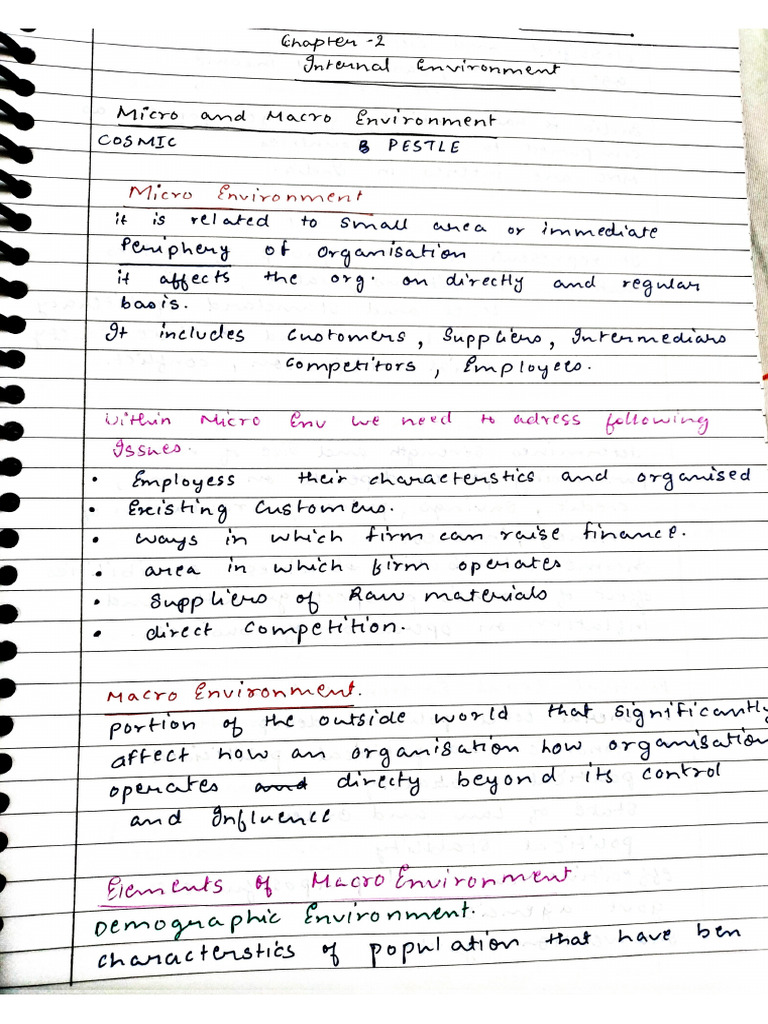 Chapter -2
Internal Environment
Micro and Macro Environment
COSMIC PESTLE
Micro Environment
it is related to small area or immediate
Periphery of organisation
it affects the org. on directly and regular
basis.
It includes Customers, Suppliers, Intermediars
Competitors, Employees.
Within Micro Env we need to adress following
Issues.
• Employess their characterstics and organised
• Existing Customers.
• ways in which firm can raise finance.
• area in which firm operates
• Suppliers of Raw materials
• direct Competition.
Macro Environment.
portion of the outside world that significantly
affect how an organisation how organisation
operates and directy beyond its control
and Influence
Elements of Macro Environment
Demographic Environment.
characterstics of population that have ben